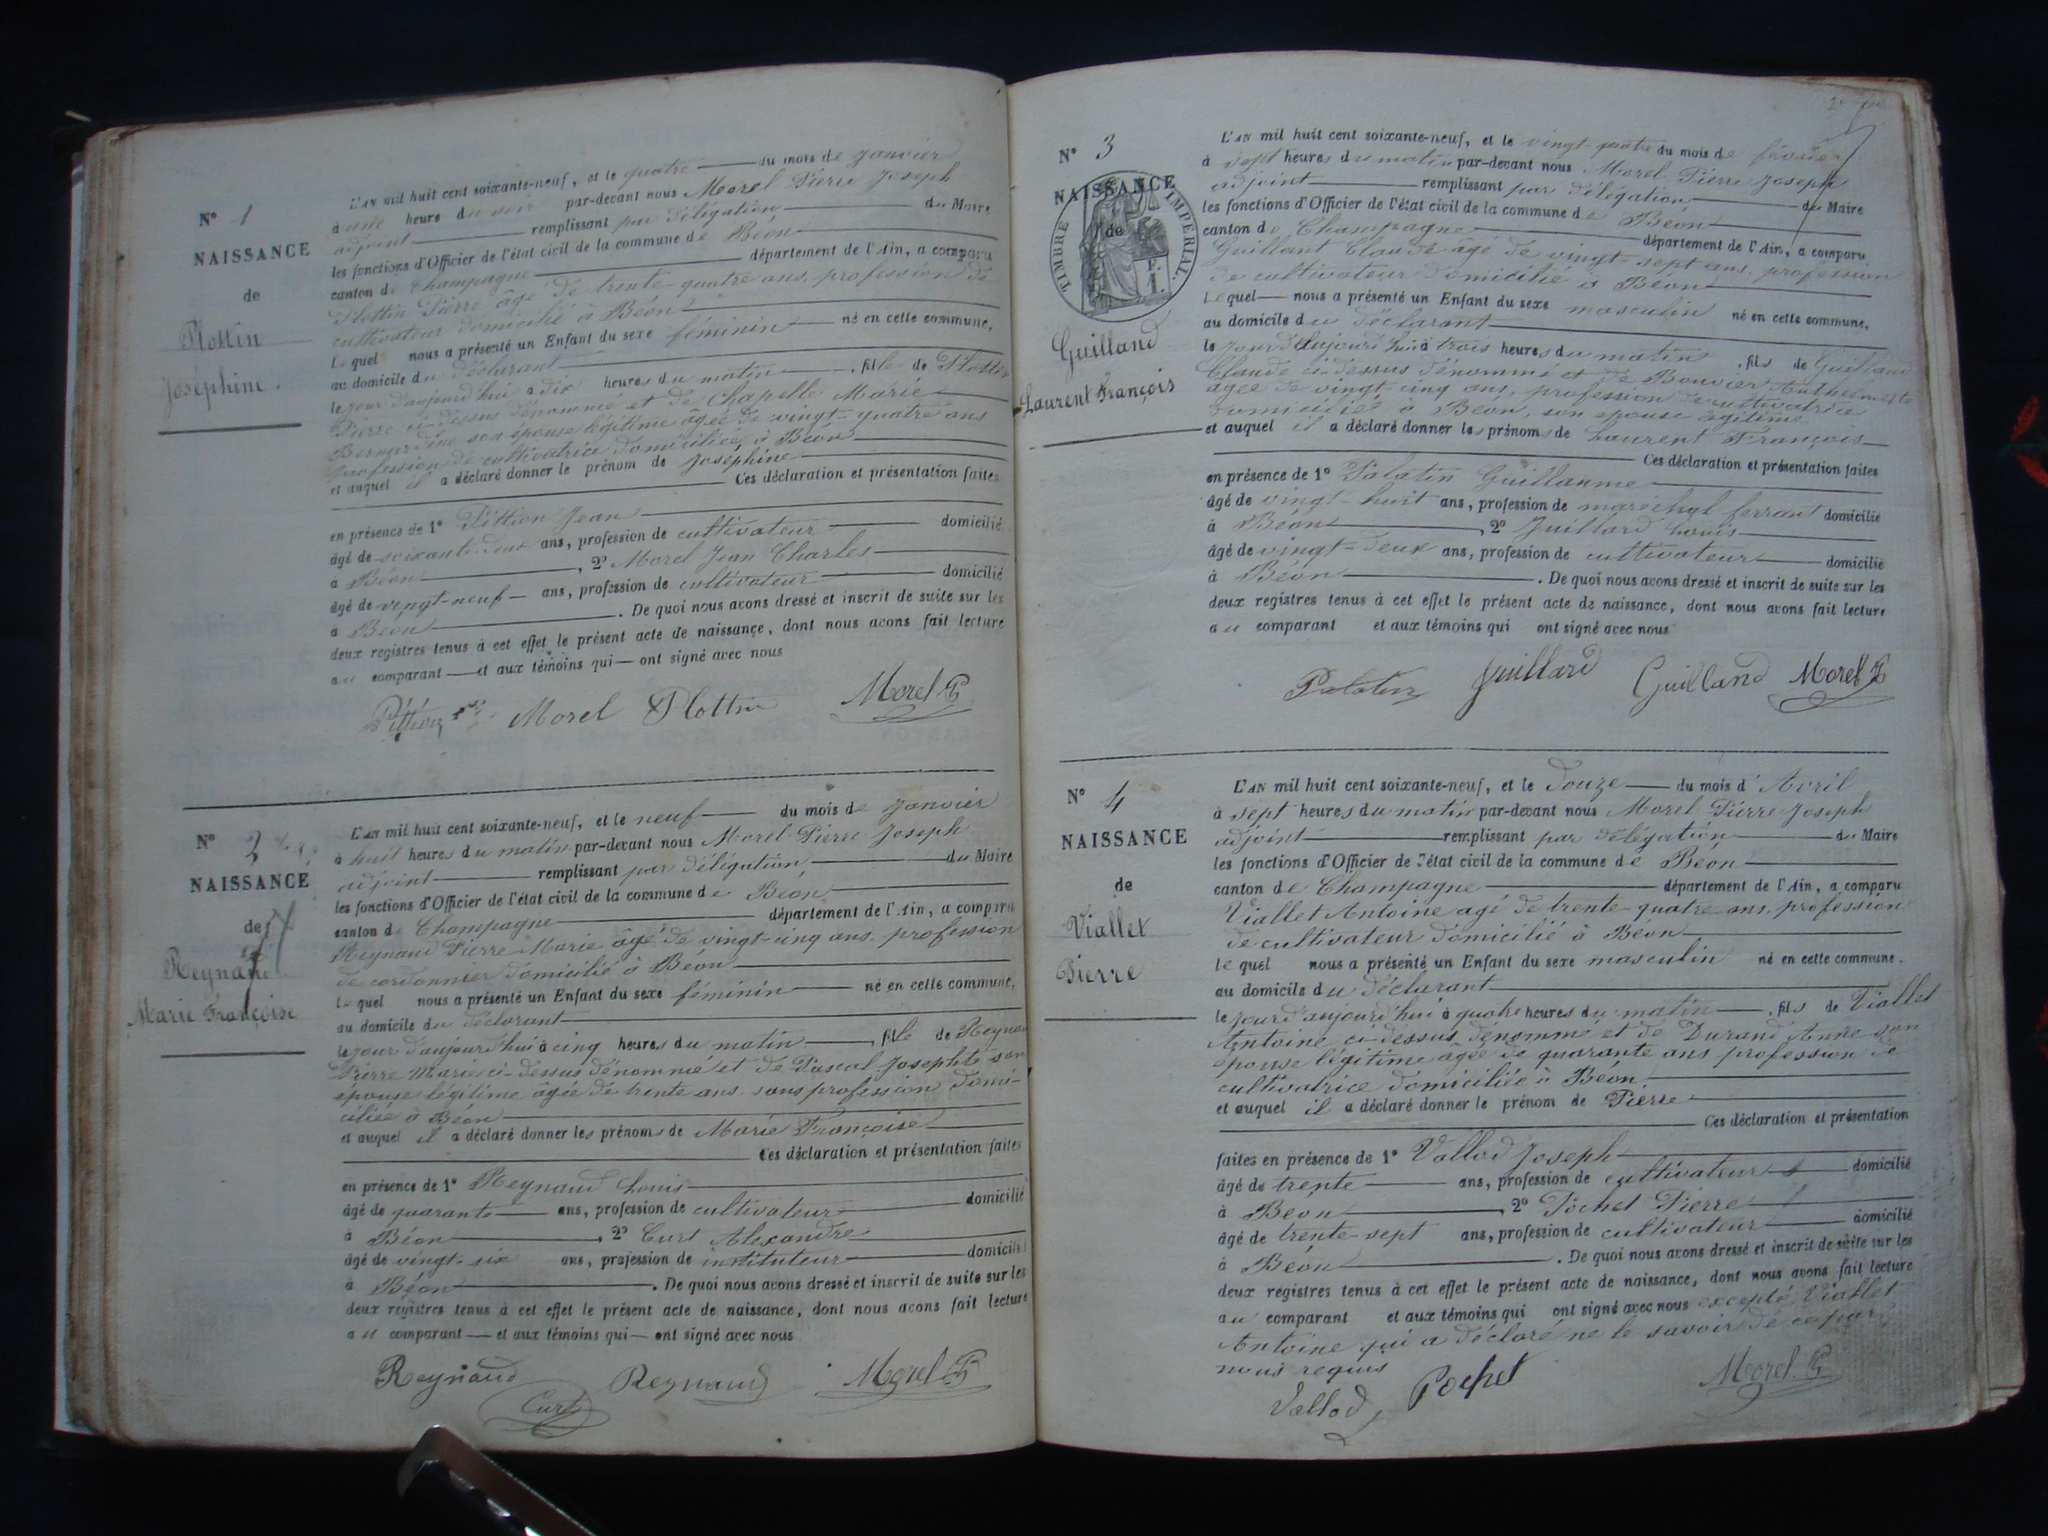 N° 1
NAISSANCE
de
Plottin
Joséphine.
L'AN mil huit cent soixante-neuf, et le quatre du mois de janvier
à une heure du soir par-devant nous Morel Pierre Joseph
adjoint remplissant par délégation du Maire
les fonctions d'Officier de l'état civil de la commune de Béon
canton de Champagne département de l'Ain, a comparu
Plottin Pierre âgé de trente-quatre ans, profession de
cultivateur domicilié à Béon
Lequel nous a présenté un Enfant du sexe féminin né en cette commune,
au domicile du déclarant
le jour d'aujourd'hui à dix heures du matin, fille de Plottin
Pierre ci-dessus dénommé et de Chapelle Marie
Bernardine son épouse légitime âgée de vingt-quatre ans
profession de cultivatrice domiciliée à Béon
et auquel il a déclaré donner le prénom de Joséphine
Ces déclaration et présentation faites
en présence de 1° Pittion Jean
âgé de soixante-deux ans, profession de cultivateur domicilié
à Béon, 2° Morel Jean Charles
âgé de vingt-neuf ans, profession de cultivateur domicilié
à Béon. De quoi nous avons dressé et inscrit de suite sur les
deux registres tenus à cet effet le présent acte de naissance, dont nous avons fait lecture
au comparant et aux témoins qui ont signé avec nous
Pittion Morel Plottin Morel P
N° 2
NAISSANCE
de
Reynaud
Marie Françoise
L'AN mil huit cent soixante-neuf, et le neuf du mois de janvier
à huit heures du matin par-devant nous Morel Pierre Joseph
adjoint remplissant par délégation du Maire
les fonctions d'Officier de l'état civil de la commune de Béon
canton de Champagne département de l'Ain, a comparu
Reynaud Pierre Marie âgé de vingt-cinq ans, profession
de cordonnier domicilié à Béon
Lequel nous a présenté un Enfant du sexe féminin né en cette commune,
au domicile du déclarant
le jour d'aujourd'hui à cinq heures du matin, fille de Reynaud
Pierre Marie ci-dessus dénommé et de Pascal Josephte son
épouse légitime âgée de trente ans sans profession domi-
ciliée à Béon
et auquel il a déclaré donner les prénoms de Marie Françoise
Ces déclaration et présentation faites
en présence de 1° Reynaud Louis
âgé de quarante ans, profession de cultivateur domicilié
à Béon, 2° Curt Alexandre
âgé de vingt-six ans, profession de instituteur domicilié
à Béon. De quoi nous avons dressé et inscrit de suite sur les
deux registres tenus à cet effet le présent acte de naissance, dont nous avons fait lecture
au comparant et aux témoins qui ont signé avec nous
Reynaud Curt Reynaud Morel P
N° 3
NAISSANCE
de
TIMBRE IMPÉRIAL
Guilland
Laurent François
L'AN mil huit cent soixante-neuf, et le vingt quatre du mois de février
à sept heures du matin par-devant nous Morel Pierre Joseph
adjoint remplissant par délégation du Maire
les fonctions d'Officier de l'état civil de la commune de Béon
canton de Champagne département de l'Ain, a comparu
Guilland Claude âgé de vingt-sept ans, profession
de cultivateur domicilié à Béon
Lequel nous a présenté un Enfant du sexe masculin né en cette commune,
au domicile du déclarant
le jour d'aujourd'hui à trois heures du matin, fils de Guilland
Claude ci-dessus dénommé et de Bouvier
âgée de vingt-cinq ans, profession de cultivatrice
domiciliée à Béon, son épouse légitime
et auquel il a déclaré donner les prénoms de Laurent François
Ces déclaration et présentation faites
en présence de 1° Palatin Guillaume
âgé de vingt-huit ans, profession de maréchal ferrant domicilié
à Béon, 2° Juillard Louis
âgé de vingt-deux ans, profession de cultivateur domicilié
à Béon. De quoi nous avons dressé et inscrit de suite sur les
deux registres tenus à cet effet le présent acte de naissance, dont nous avons fait lecture
au comparant et aux témoins qui ont signé avec nous
Palatin Juillard Guilland Morel P
N° 4
NAISSANCE
de
Viallet
Pierre
L'AN mil huit cent soixante-neuf, et le douze du mois d'Avril
à sept heures du matin par-devant nous Morel Pierre Joseph
adjoint remplissant par délégation du Maire
les fonctions d'Officier de l'état civil de la commune de Béon
canton de Champagne département de l'Ain, a comparu
Viallet Antoine agé de trente-quatre ans, profession
de cultivateur domicilié à Béon
Lequel nous a présenté un Enfant du sexe masculin né en cette commune.
au domicile du déclarant
le jour d'aujourd'hui à quatre heures du matin, fils de Viallet
Antoine ci-dessus dénommé et de Durand Anne son
épouse légitime âgée de quarante ans profession de
cultivatrice domiciliée à Béon
et auquel il a déclaré donner le prénom de Pierre
Ces déclaration et présentation
faites en présence de 1° Vallod Joseph
âgé de trente ans, profession de cultivateur domicilié
à Béon, 2° Pochet Pierre
âgé de trente-sept ans, profession de cultivateur domicilié
à Béon. De quoi nous avons dressé et inscrit de suite sur les
deux registres tenus à cet effet le présent acte de naissance, dont nous avons fait lecture
au comparant et aux témoins qui ont signé avec nous excepté Viallet
Antoine qui a déclaré ne le savoir de ce par
nous requis
Vallod Pochet Morel P